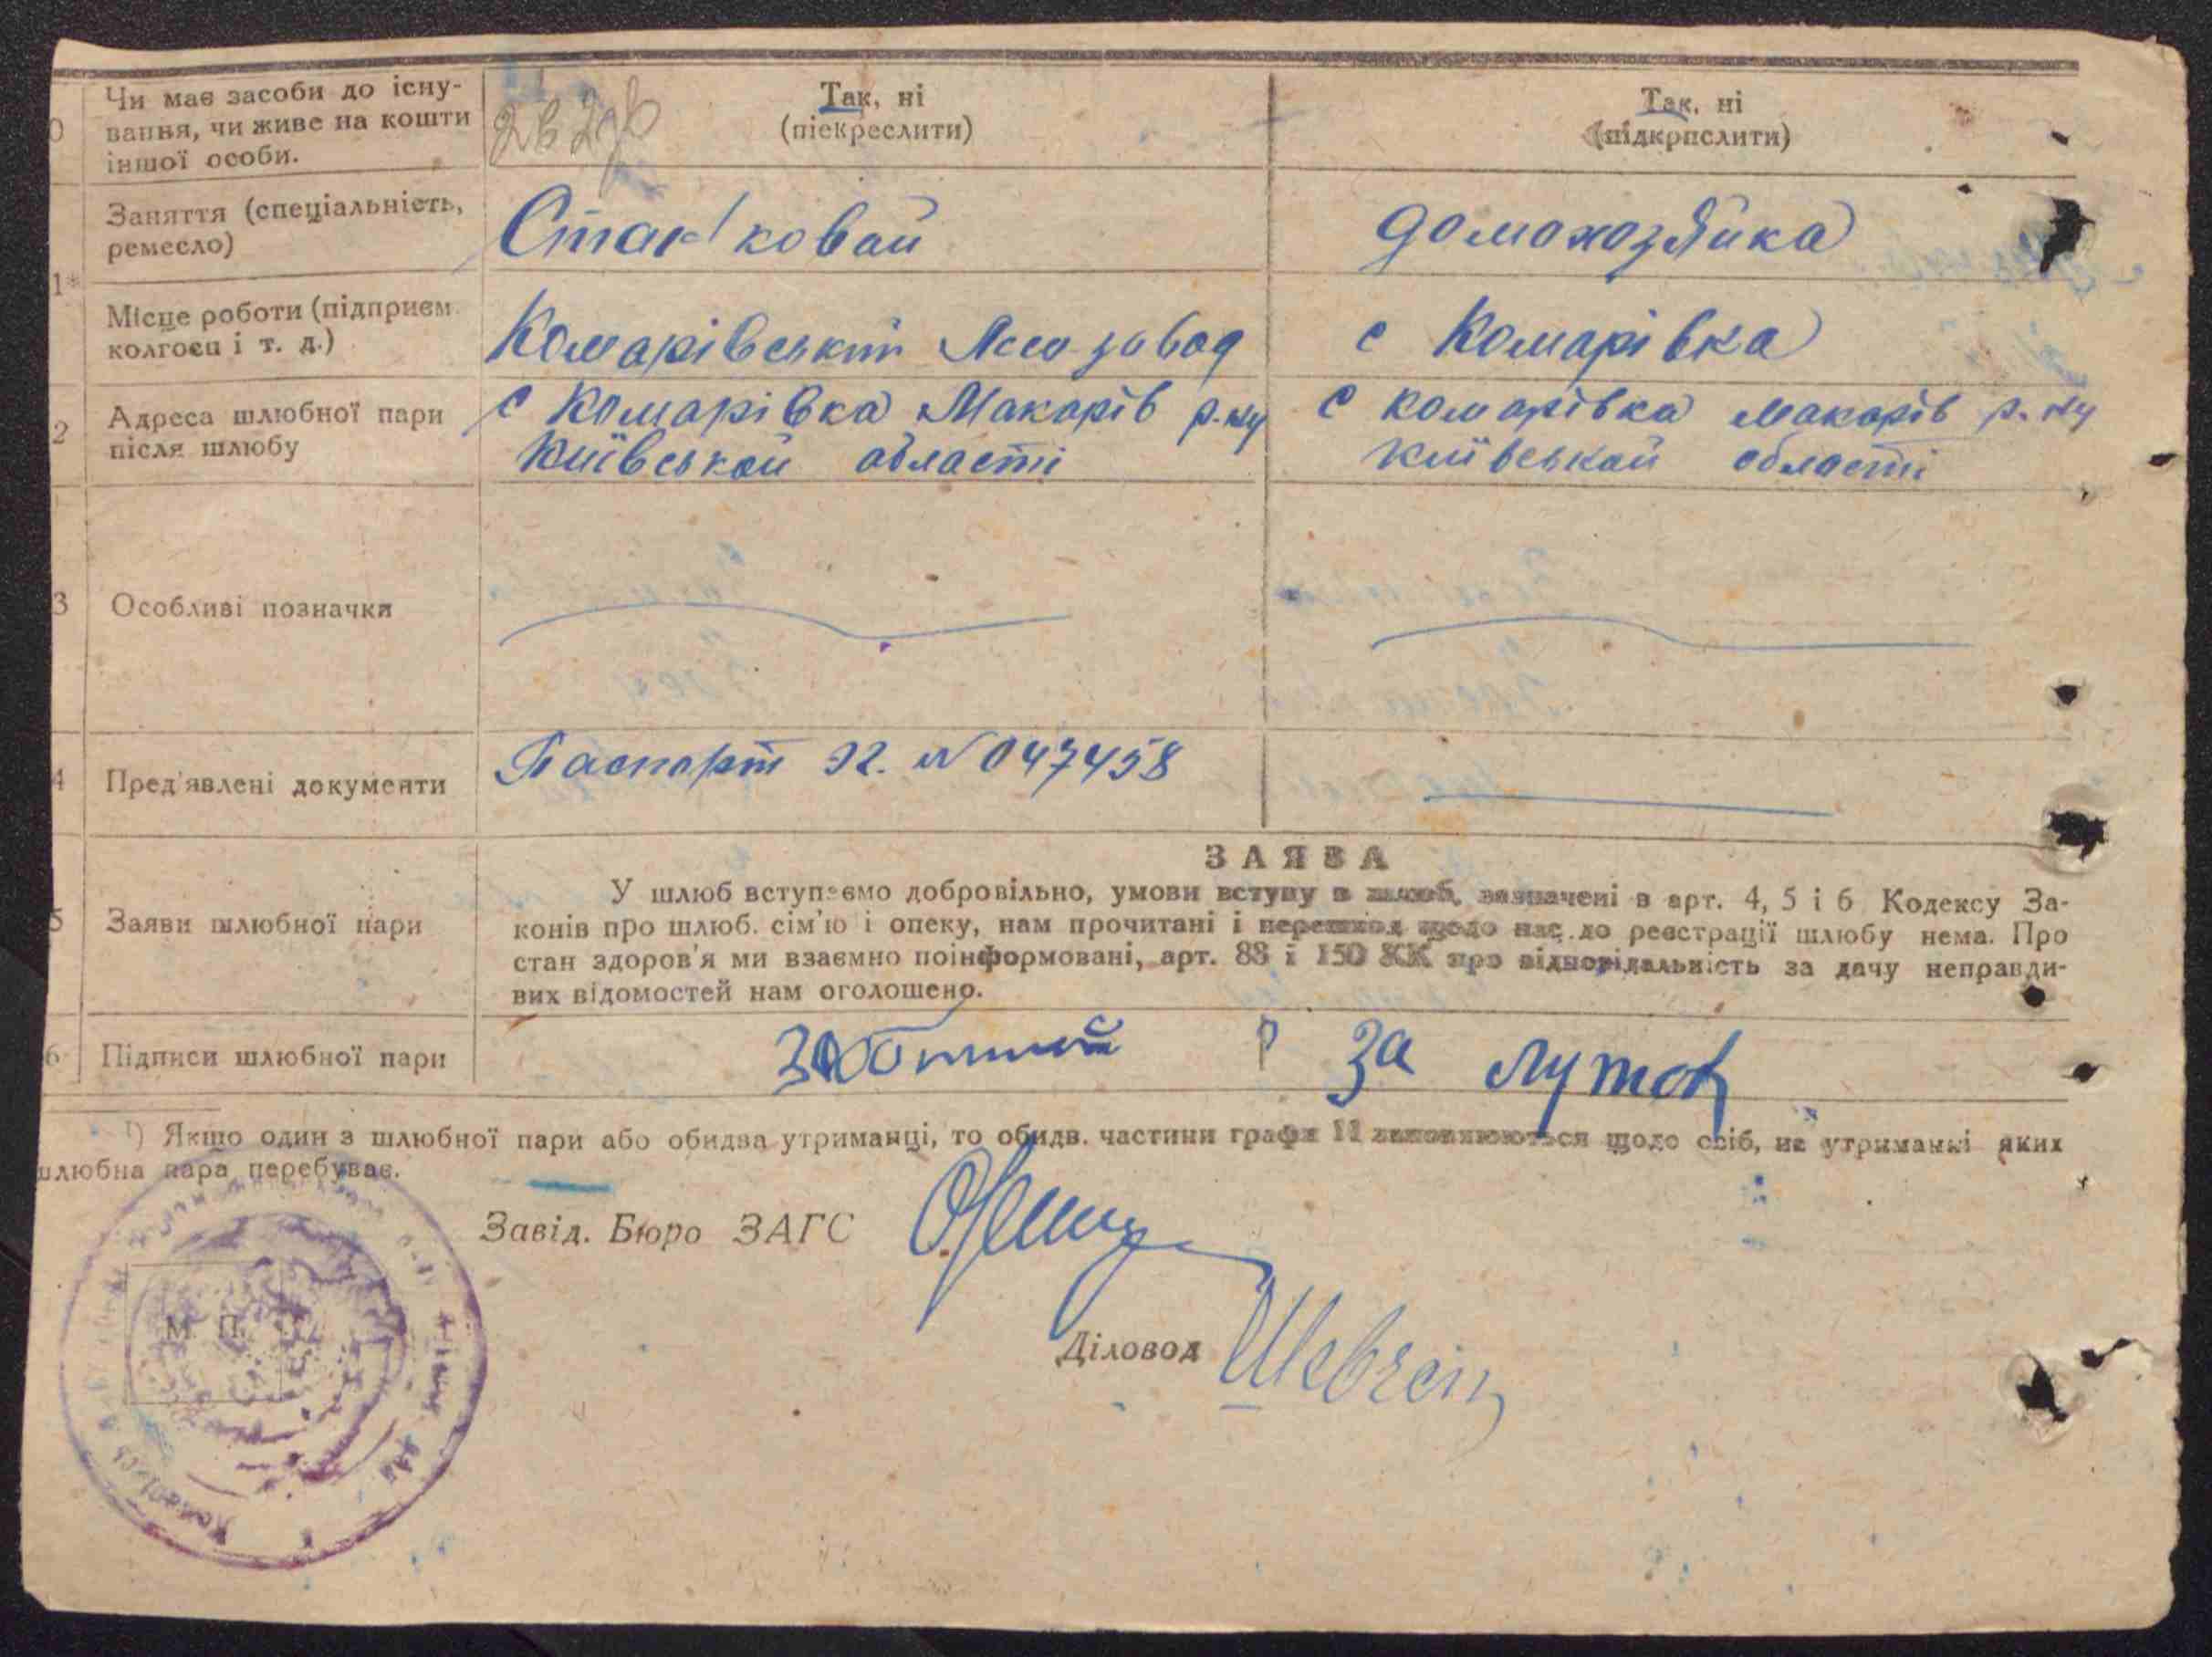 Чи має засоби до існу-
вання, чи живе на кошти
іншої особи.
Так, ні
(піекреслити)
Так, ні
(підкрпслити)
Заняття (спеціальність,
ремесло)
Станковай
домохозяйка
1*
Місце роботи (підприєм.
колгосп і т. д.)
Комарівський Лесо завод
с Комарівка
2
Адреса шлюбної пари
після шлюбу
с Комарівка Макарів р.ну
Київськой області
с Комарівка Макарів р.ну
Київськой області
3
Особливі позначки
4
Пред'явлені документи
Паспорт № 047458
5
Заяви шлюбної пари
ЗАЯВА
У шлюб вступаємо добровільно, умови вступу в шлюб, зазначені в арт. 4, 5 і 6 Кодексу За-
конів про шлюб. сім'ю і опеку, нам прочитані і перешкод щодо нас до реєстрації шлюбу нема. Про
стан здоров'я ми взаємно поінформовані, арт. 88 і 150 КК про відповідальність за дачу неправди-
вих відомостей нам оголошено.
6
Підписи шлюбної пари
За
1) Якщо один з шлюбної пари або обидва утриманці, то обидв. частини графи 11 заповнюються щодо осіб, на утриманні яких
шлюбна пара перебуває.
Завід. Бюро ЗАГС
М. П.
Діловод